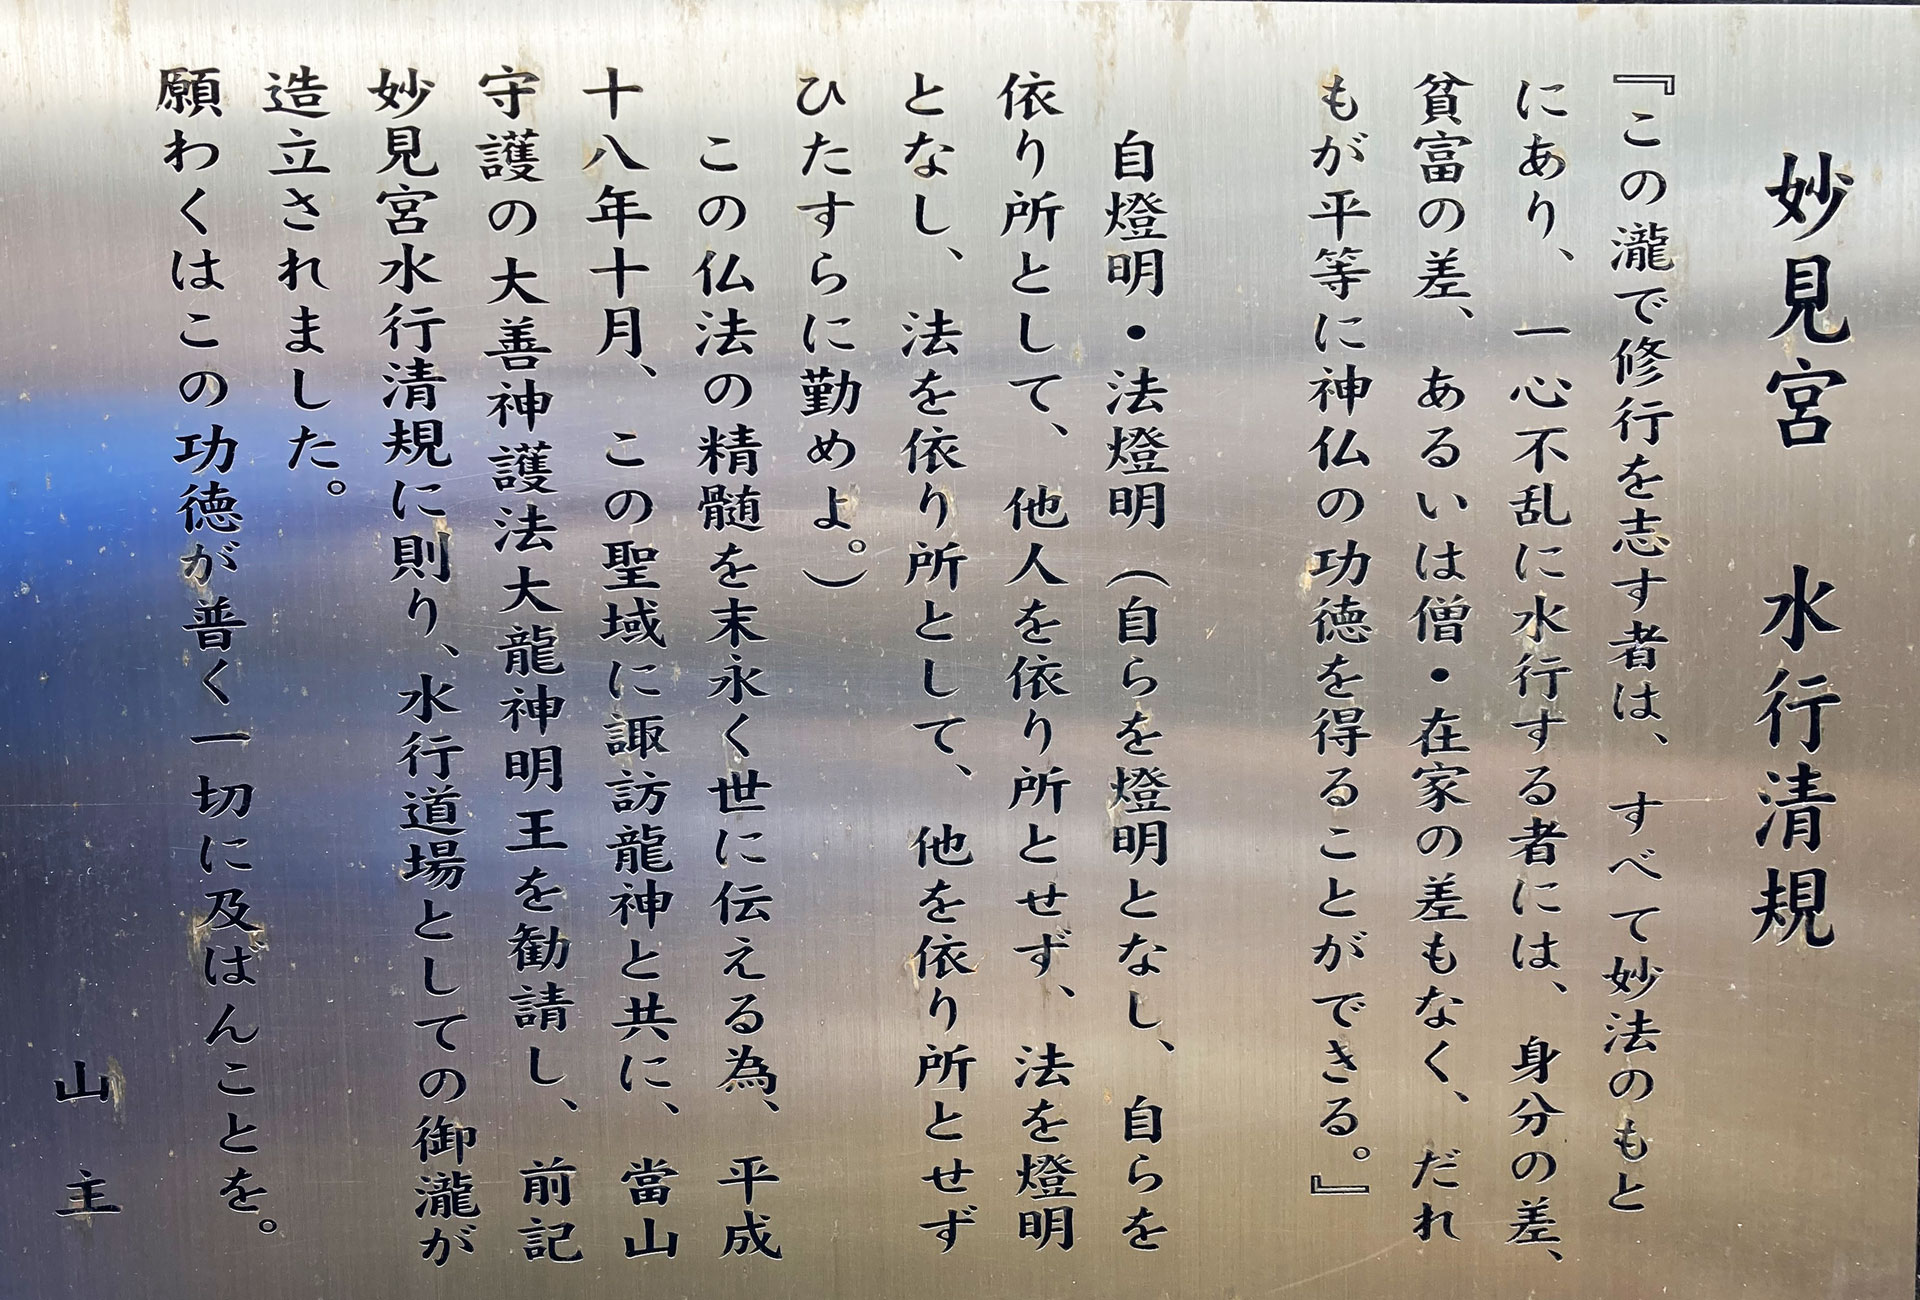 妙見宮　水行清規
『この瀧で修行を志す者は、すべて妙法のもと
にあり、一心不乱に水行する者には、身分の差、
貧富の差、あるいは僧・在家の差もなく、だれ
もが平等に神仏の功徳を得ることができる。』
自燈明・法燈明（自らを燈明となし、自らを
依り所として、他人を依り所とせず、法を燈明
となし、法を依り所として、他を依り所とせず
ひたすらに勤めよ。）
この仏法の精髄を末永く世に伝える為、平成
十八年十月、この聖域に諏訪龍神と共に、當山
守護の大善神護法大龍神明王を勧請し、前記
妙見宮水行清規に則り、水行道場としての御瀧が
造立されました。
願わくはこの功徳が普く一切に及ばんことを。
山主